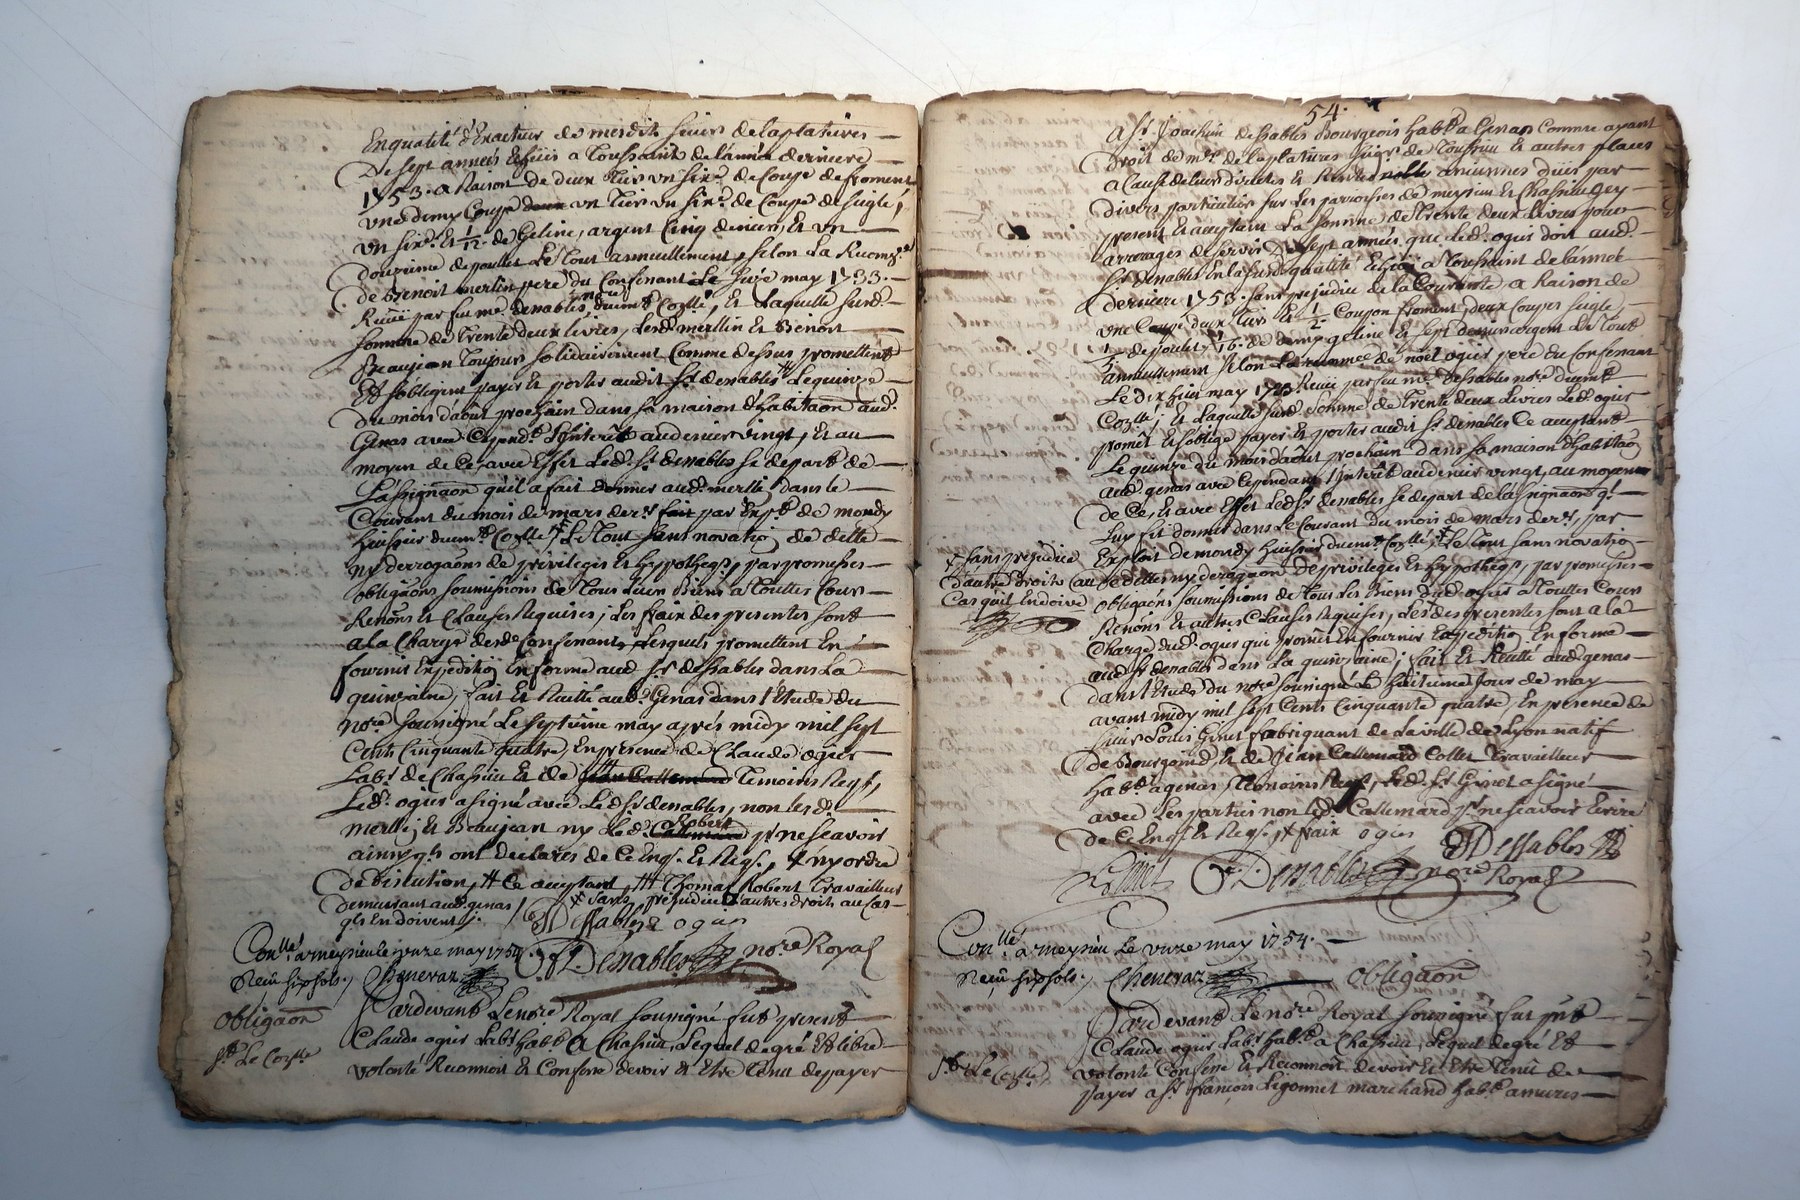 En qualité d'Exacteur de mesdits sieurs de laplatieres
De sept années Echües a Toussaint de lannée derniere
1753. a Raison de deux Tier un six.e de Coupe de froment
une demy Coupe un Tier un six.e de Coupe de seigle,
un six.e Et 1/12 de Geline, argent Cinq deniers, Et un
douzieme de poullet Le Tout annuellement, selon La Reconn.ce
de Benoit merlin pere du Confessant Le may 1733.
Reçüe par feu me denables no.re, Et Laquelle susd.
somme de Trente deux livres, Lesd. merlin Et Benoit
Beaujean Toujours solidairement Comme dessus promettent
Et sobligent payer Et porter audit Sr. denables Lequinze
Du mois daout prochain dans sa maison d'habitaon aud.
Genas avec Cepend.t L'Interêt audenier vingt, Et au
moyen de Ce, avec Effet Led. Sr. denables se depart de
L'assignaon qu'il a fait donner aud. merlin, dans le
Courant du mois de mars der.r par Exp.t de mondy
huissier Le Tout sans novatio de dette
ny derrogaons de privileges Et hypotheqs, par promesses
obligaons soumissions de Tous Leurs Biens a Touttes Cours
Renons Et Clauses Requises; Les frais des presentes sont
a la Charge desd. Confessants, Lesquels promettent En
fournir Expeditio En forme aud. Sr. dessables dans La
quinzaine; fait Et Recitté aud. Genas dans l'Etude du
no.re soussigné Le septieme may après midy mil sept
Cents Cinquante quatre, En presence de Claude ogier
Lab.r de Chassieu Et de Temoins Reqs,
Led. ogier a signé avec Led. Sr. denables, non lesd.
Robert
merlin, Et Beaujean ny Led. p.r ne scavoir
ainsy qls ont declarés de Ce Enqs. Et Reqs., + ny ordre
de discution, # Ce acceptant, ### Thomas Robert Travailleur
demeurant aud. genas / + sans prejudice d'autres droits au Cas
qls En doivent /.
Dessables ogier
Con.llé a meysieu le onze may 1754
Denables no.re Royal
Reçu six sols. / Cheneraz
obligaon
Pardevant Le no.re Royal soussigné fut present
Claude ogier Lab.r hab.t A Chassieu, Lequel de gré Et libre
volonté Reconnoit Et Confesse devoir Et Etre Tenu de payer
54.
a Sr. Joachim dessables Bourgeois hab.t a Genas Comme ayant
droit de mr. de laplatieres seig.r de Et autres places
a Cause de leurs directes Et Rentes nobles anciennes düës par
divers particuliers sur Les parroisses de meysieu Et Chassieu gey
present Et acceptant La somme de Trente deux Livres pour
arrerages de servis De sept années que Led. ogier doit aud.
Sr. denables En la susd. qualité Echüe a Toussaint de lannée
derniere 1753. sans prejudice de la Courante a Raison de
une Coupe deux Tier Et 1/2 Coupon froment, deux Coupes seigle,
de poulet, de demy geline Et sept deniers argent Le Tout
annuellement selon La de noel ogier pere du Confessant
Le dix huit may Reçüe par feu me. dessables no.re
Et Laquelle susd. somme de Trente deux Livres Led. ogier
promet Et soblige payer Et porter audit Sr. denables Ce acceptant
Le quinze du mois daout prochain dans sa maison d'habitao
aud. genas avec Cependant l'Interêt au denier vingt, au moyen
de Ce, Et avec Effet Led. Sr. denables se depart de Lassignaon q.l
Luy fit donner dans Le Courant du mois de mars der.r, par
Exploit de mondy huissier Le Tout sans novatio
+ sans prejudice
d'autres droits au
Cas quil En doive
de dette ny derogaon de privileges Et hypotheqs, par promesses
obligaons soumissions de Tous Les Biens dud. ogier a Touttes Cours
Renons Et autres Clauses Requises, Les des presentes sont a la
Charge dud. ogier qui promet En fournir Expeditio En forme
aud. Sr. denables dans La quinzaine; fait Et Recitté aud. genas
dans l'Etude du no.re soussigné Le huitieme Jour de may
avant midy mil sept Cents Cinquante quatre, En presence de
sieur Louis Ginet fabriquant de la ville de Lyon natif
de Bourgoind, Et de Jean Callemard Collet Travailleur
hab.t a genas Temoins Reqs, Led. Sr. Ginet a signé
avec Les parties non Led. Callemard p.r ne scavoir Ecrire
de Ce Enqs. Et Reqs., + frais ogier
Dessables
Ginet Denables no.re Royal
Con.llé a meysieu Le onze may 1754.
Reçu six sols. / Cheneraz
obligaon
Pardevant Le no.re Royal soussigné fut p.nt
Claude ogier Lab.r hab.t a Chassieu, Lequel de gré Et
volonté Confesse Et Reconnoit devoir Et Etre Tenu de
payer a Sr. françois Ligonnet marchand hab.t a mures